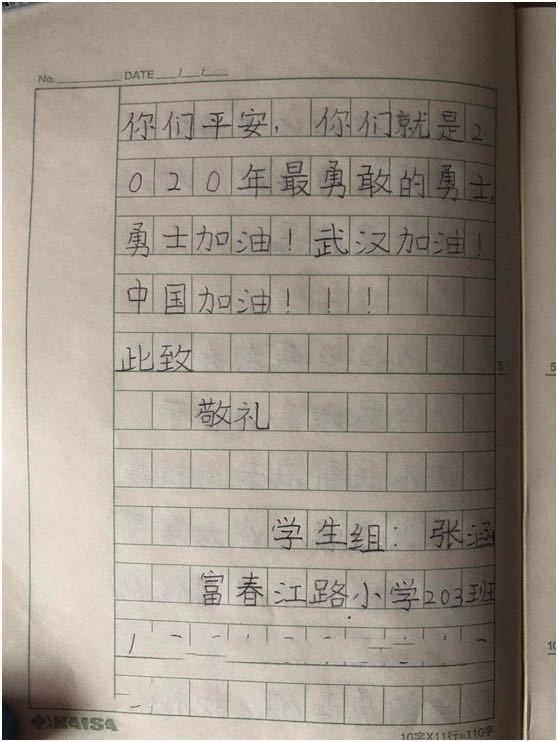 No. DATE / /
你们平安,你们就是2
020年最勇敢的勇士,
勇士加油!武汉加油!
中国加油!!!
此致
敬礼
学生组:张涵
富春江路小学203班
5
5
10
KAISA
10字X11行=110字